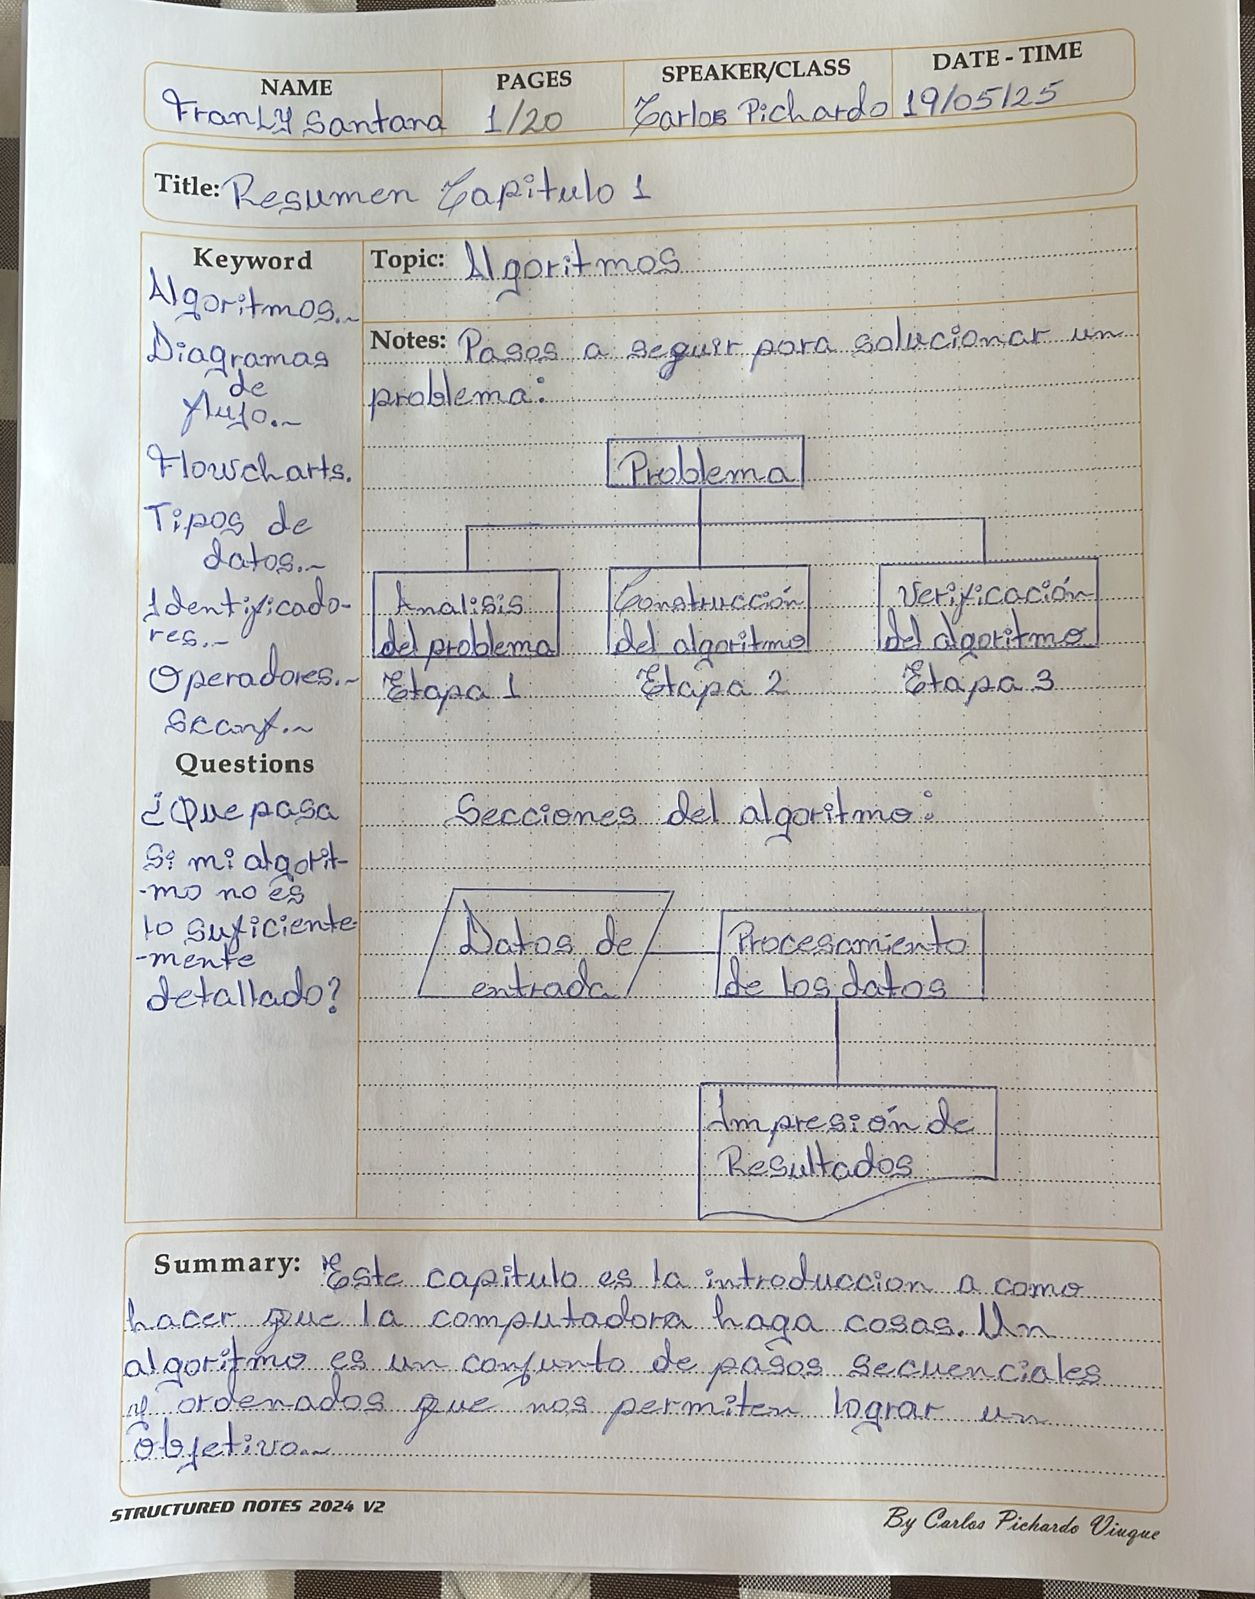 NAME PAGES SPEAKER/CLASS DATE - TIME
Franly Santana 1/20 Carlos Pichardo 19/05/25
Title: Resumen Capitulo 1
Keyword
Algoritmos.~
Diagramas
de
flujo.~
Flowcharts.
Tipos de
datos.~
Identificado-
res.~
Operadores.~
Scanf.~
Questions
¿Que pasa
si mi algorit-
-mo no es
lo suficiente-
-mente
detallado?
Topic: Algoritmos
Notes: Pasos a seguir para solucionar un
problema:
Problema
Analisis
del problema
Etapa 1
Construcción
del algoritmo
Etapa 2
Verificación
del algoritmo
Etapa 3
Secciones del algoritmo:
Datos de
entrada
Procesamiento
de los datos
Impresión de
Resultados
Summary: Este capitulo es la introduccion a como
hacer que la computadora haga cosas. Un
algoritmo es un conjunto de pasos secuenciales
y ordenados que nos permiten lograr un
objetivo.~
STRUCTURED NOTES 2024 V2
By Carlos Pichardo Viuque